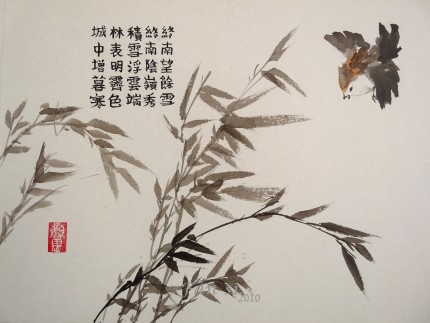 終南望餘雪
終南陰嶺秀
積雪浮雲端
林表明霽色
城中增暮寒
2010